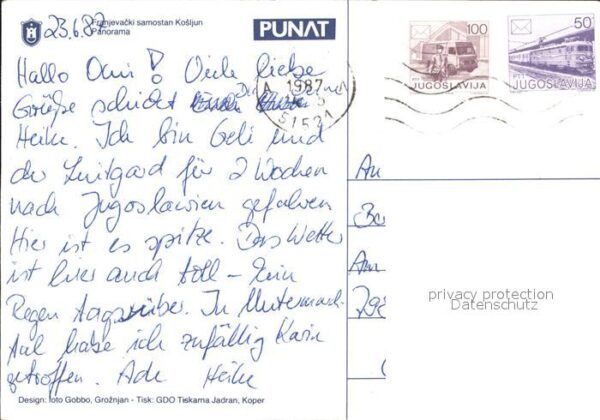 23.6.87
Franjevački samostan Košljun
Panorama
PUNAT
100
PTT JUGOSLAVIJA
50
PTT JUGOSLAVIJA
1987
51521
Hallo Omi! Viele liebe
Grüße schickt Dir
Heike. Ich bin Geli und
der Luitgard für 2 Wochen
nach Jugoslawien gefahren
Hier ist es spitze. Das Wetter
ist hier auch toll – kein
Regen tagsüber. In Untermarch-
tal habe ich zufällig Karin
getroffen. Ade Heike
An
privacy protection
Datenschutz
Design: foto Gobbo, Grožnjan - Tisk: GDO Tiskarna Jadran, Koper